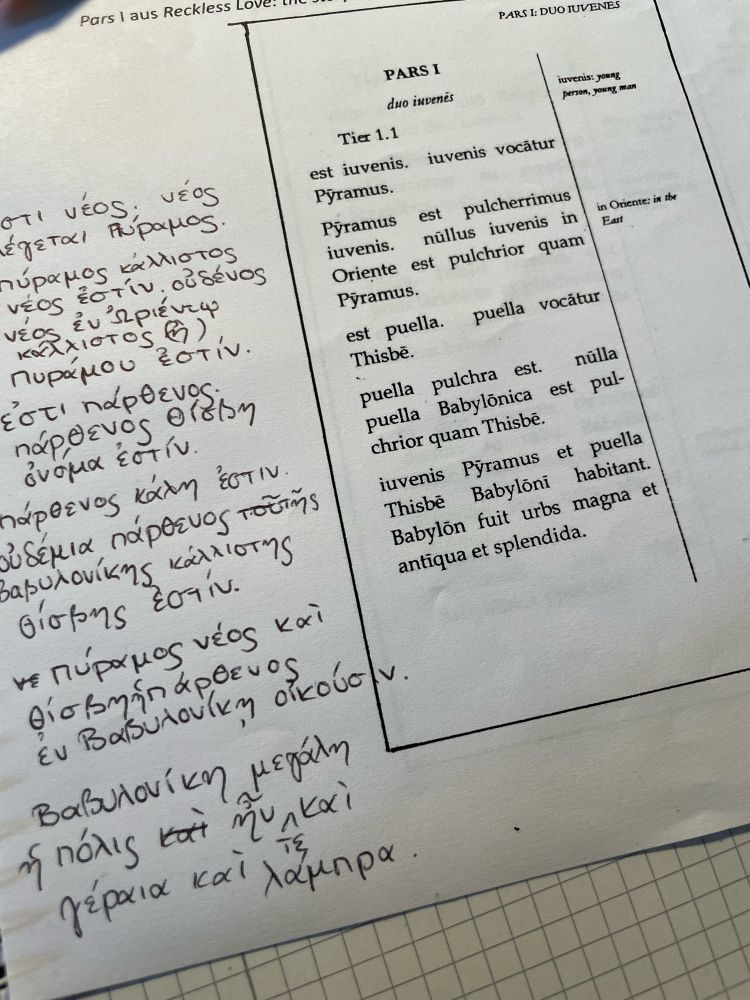 Pars I aus Reckless Love:
PARS I: DUO IUVENES
PARS I
duo iuvenēs
Tier 1.1
est iuvenis. iuvenis vocātur
Pȳramus.
Pȳramus est pulcherrimus
iuvenis. nūllus iuvenis in
Oriente est pulchrior quam
Pȳramus.
est puella. puella vocātur
Thisbē.
puella pulchra est. nūlla
puella Babylōnica est pul-
chrior quam Thisbē.
iuvenis Pȳramus et puella
Thisbē Babylōnī habitant.
Babylōn fuit urbs magna et
antīqua et splendida.
iuvenis: young
person, young man
in Oriente: in the
East
στι νέος. νέος
λέγεται Πύραμος.
πύραμος κάλλιστος
νέος ἐστίν. οὐδένος
νέος ἐν Ὠριέντῳ
κάλλιστος (ἢ)
πυράμου ἐστίν.
ἐστι πάρθενος.
πάρθενος θίσβη
ὀνόμα ἐστίν.
πάρθενος κάλη ἐστιν.
οὐδέμια πάρθενος
βαβυλονίκης κάλλιστης
θίσβης ἐστίν.
πύραμος νέος καὶ
θίσβη ἡ πάρθενος
ἐν Βαβυλονίκῃ οἰκούσιν.
Βαβυλονίκη μεγάλη
ἡ πόλις καὶ ἦν καὶ
τε
γέραια καὶ λάμπρα.